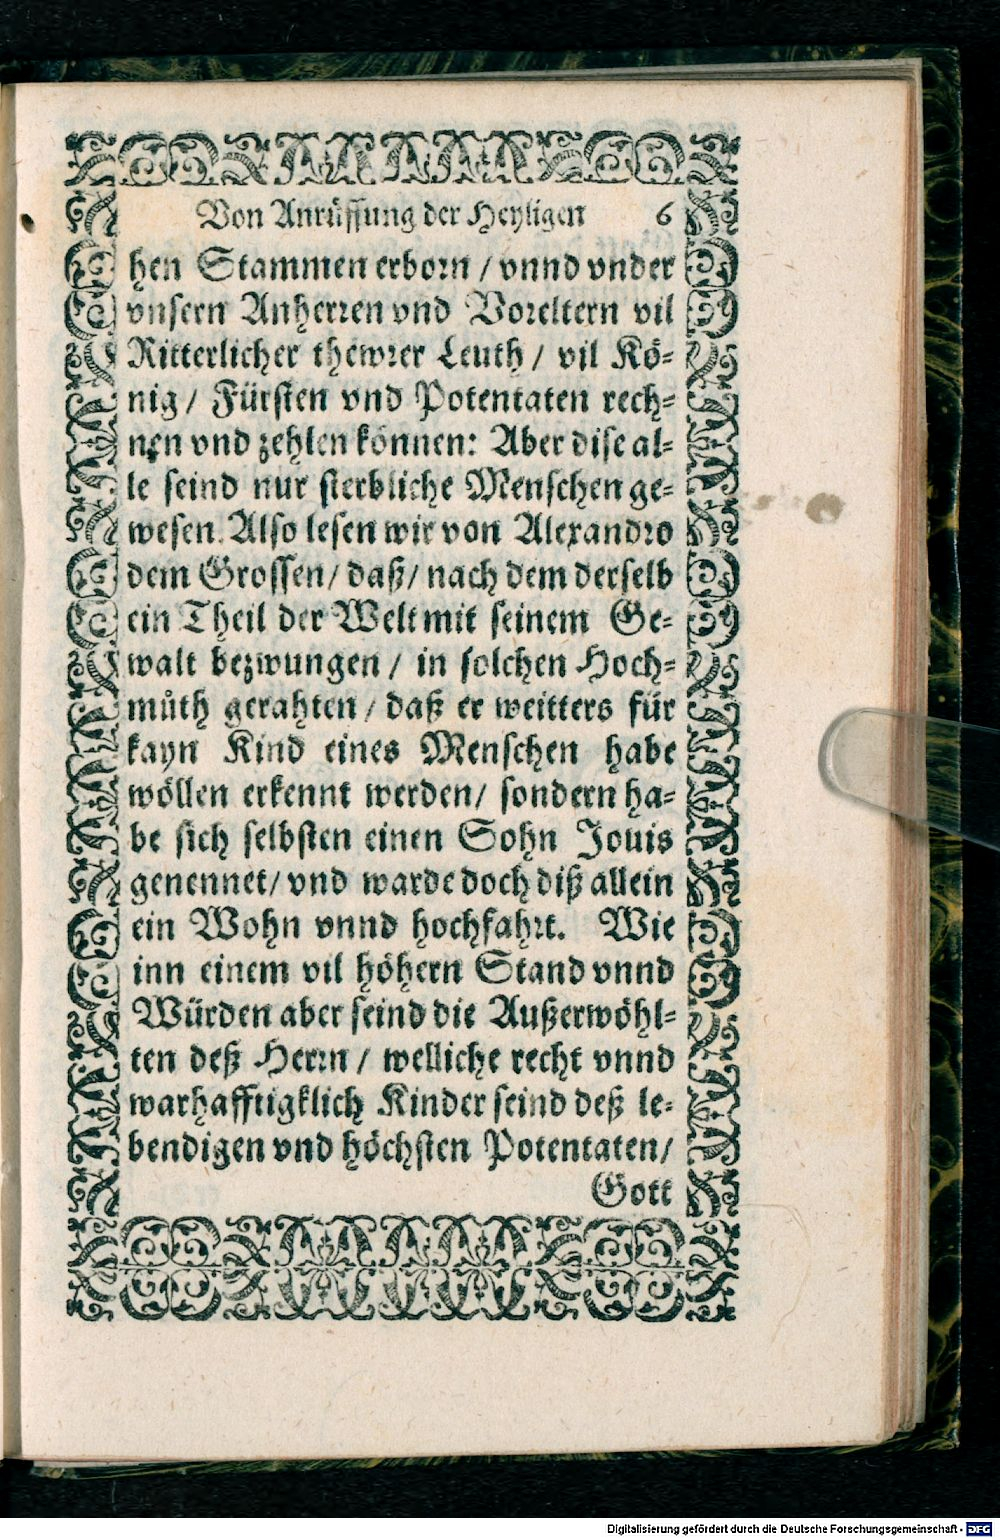 Von Anrüffung der Heyligen 6
hen Stammen erborn / vnnd vnder
vnsern Anherren vnd Voreltern vil
Ritterlicher thewrer Leuth / vil Kö=
nig / Fürsten vnd Potentaten rech=
nen vnd zehlen können: Aber dise al=
le seind nur sterbliche Menschen ge=
wesen. Also lesen wir von Alexandro
dem Grossen / daß / nach dem derselb
ein Theil der Welt mit seinem Ge=
walt bezwungen / in solchen Hoch=
můth gerahten / daß er weitters für
kayn Kind eines Menschen habe
wöllen erkennt werden / sondern ha=
be sich selbsten einen Sohn Jouis
genennet / vnd warde doch diß allein
ein Wohn vnnd hochfahrt. Wie
inn einem vil höhern Stand vnnd
Würden aber seind die Außerwöhl=
ten deß Herrn / welliche recht vnnd
warhafftigklich Kinder seind deß le=
bendigen vnd höchsten Potentaten /
Gott
Digitalisierung gefördert durch die Deutsche Forschungsgemeinschaft - DFG